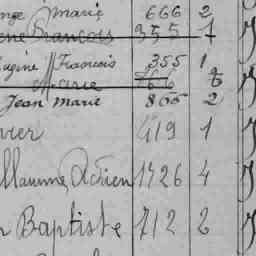 nge Marie 666 2
ené Francois 355 7
ugène Francois 355 1
Marie 766
Jean Marie 866 2
vier 419 1
illaume, Adrien 1426 4
n Baptiste 712 2